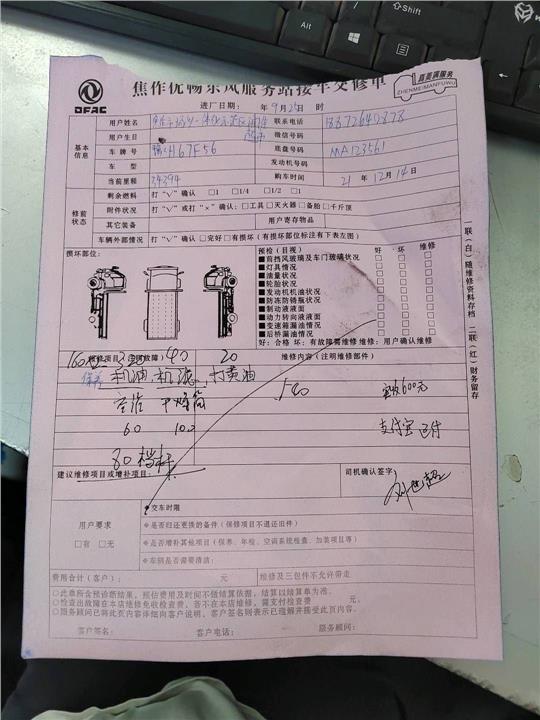 焦作优畅东风服务站接车交修单
真美满服务
ZHENMEIMANFUWU
DFAC
进厂日期： 年 9月25日 时
基本信息
用户姓名
用户生日
微信号码
车牌号 H67F56
底盘号码 MA123561
车型
发动机号码
当前里程 34394
购车时间 21年12月14日
修前状态
剩余燃料 打“√”确认 □1 □1/4 □1/2 □1
附件状况 打“√”或打“×”确认：□工具□灭火器□备胎□千斤顶
其它装备
用户寄存物品
车辆外部情况 打“√”确认□完好□有损坏(有损坏部位标注有下表左图)
损坏部位：
预检(目视) 好 坏 维修
■前挡风玻璃及车门玻璃状况
■灯具情况
■油量状况
■轮胎状况
■发动机机油状况
■防冻防锈瓶状况
■制动液液面
■动力转向液液面
■变速箱漏油情况
■后桥漏油情况
好：合格 坏：有故障需维修 维修：用户确认维修
维修项目(注明故障) 40 20
维修内容(注明维修部件)
保养 机油 机滤 打黄油
540
600元
干燥筒
支付宝 已付
60 100
80
建议维修项目或增补项目：
司机确认签字：
用户要求
□有 □无
◆交车时限
◆是否归还更换的备件(保修项目不退还旧件)
◆是否增补其他项目(保养、年检、空调系统检查、加装项目等)
◆车辆是否需要清洁：
费用合计(客户)： 元
维修及三包件不允许带走
○此单所含预诊断结果，预估费用及时间不能结算依据，结算以结算单为准。
○检查出故障在本店维修免收检查费，若不在本店维修，需支付检查费 元。
○服务顾问已将此页内容详细向客户说明，客户签名则表示已理解并接受此页内容。
客户签名： 客户电话： 服务顾问：
一联(白)随维修资料存档 二联(红)财务留存
Shift
Alt